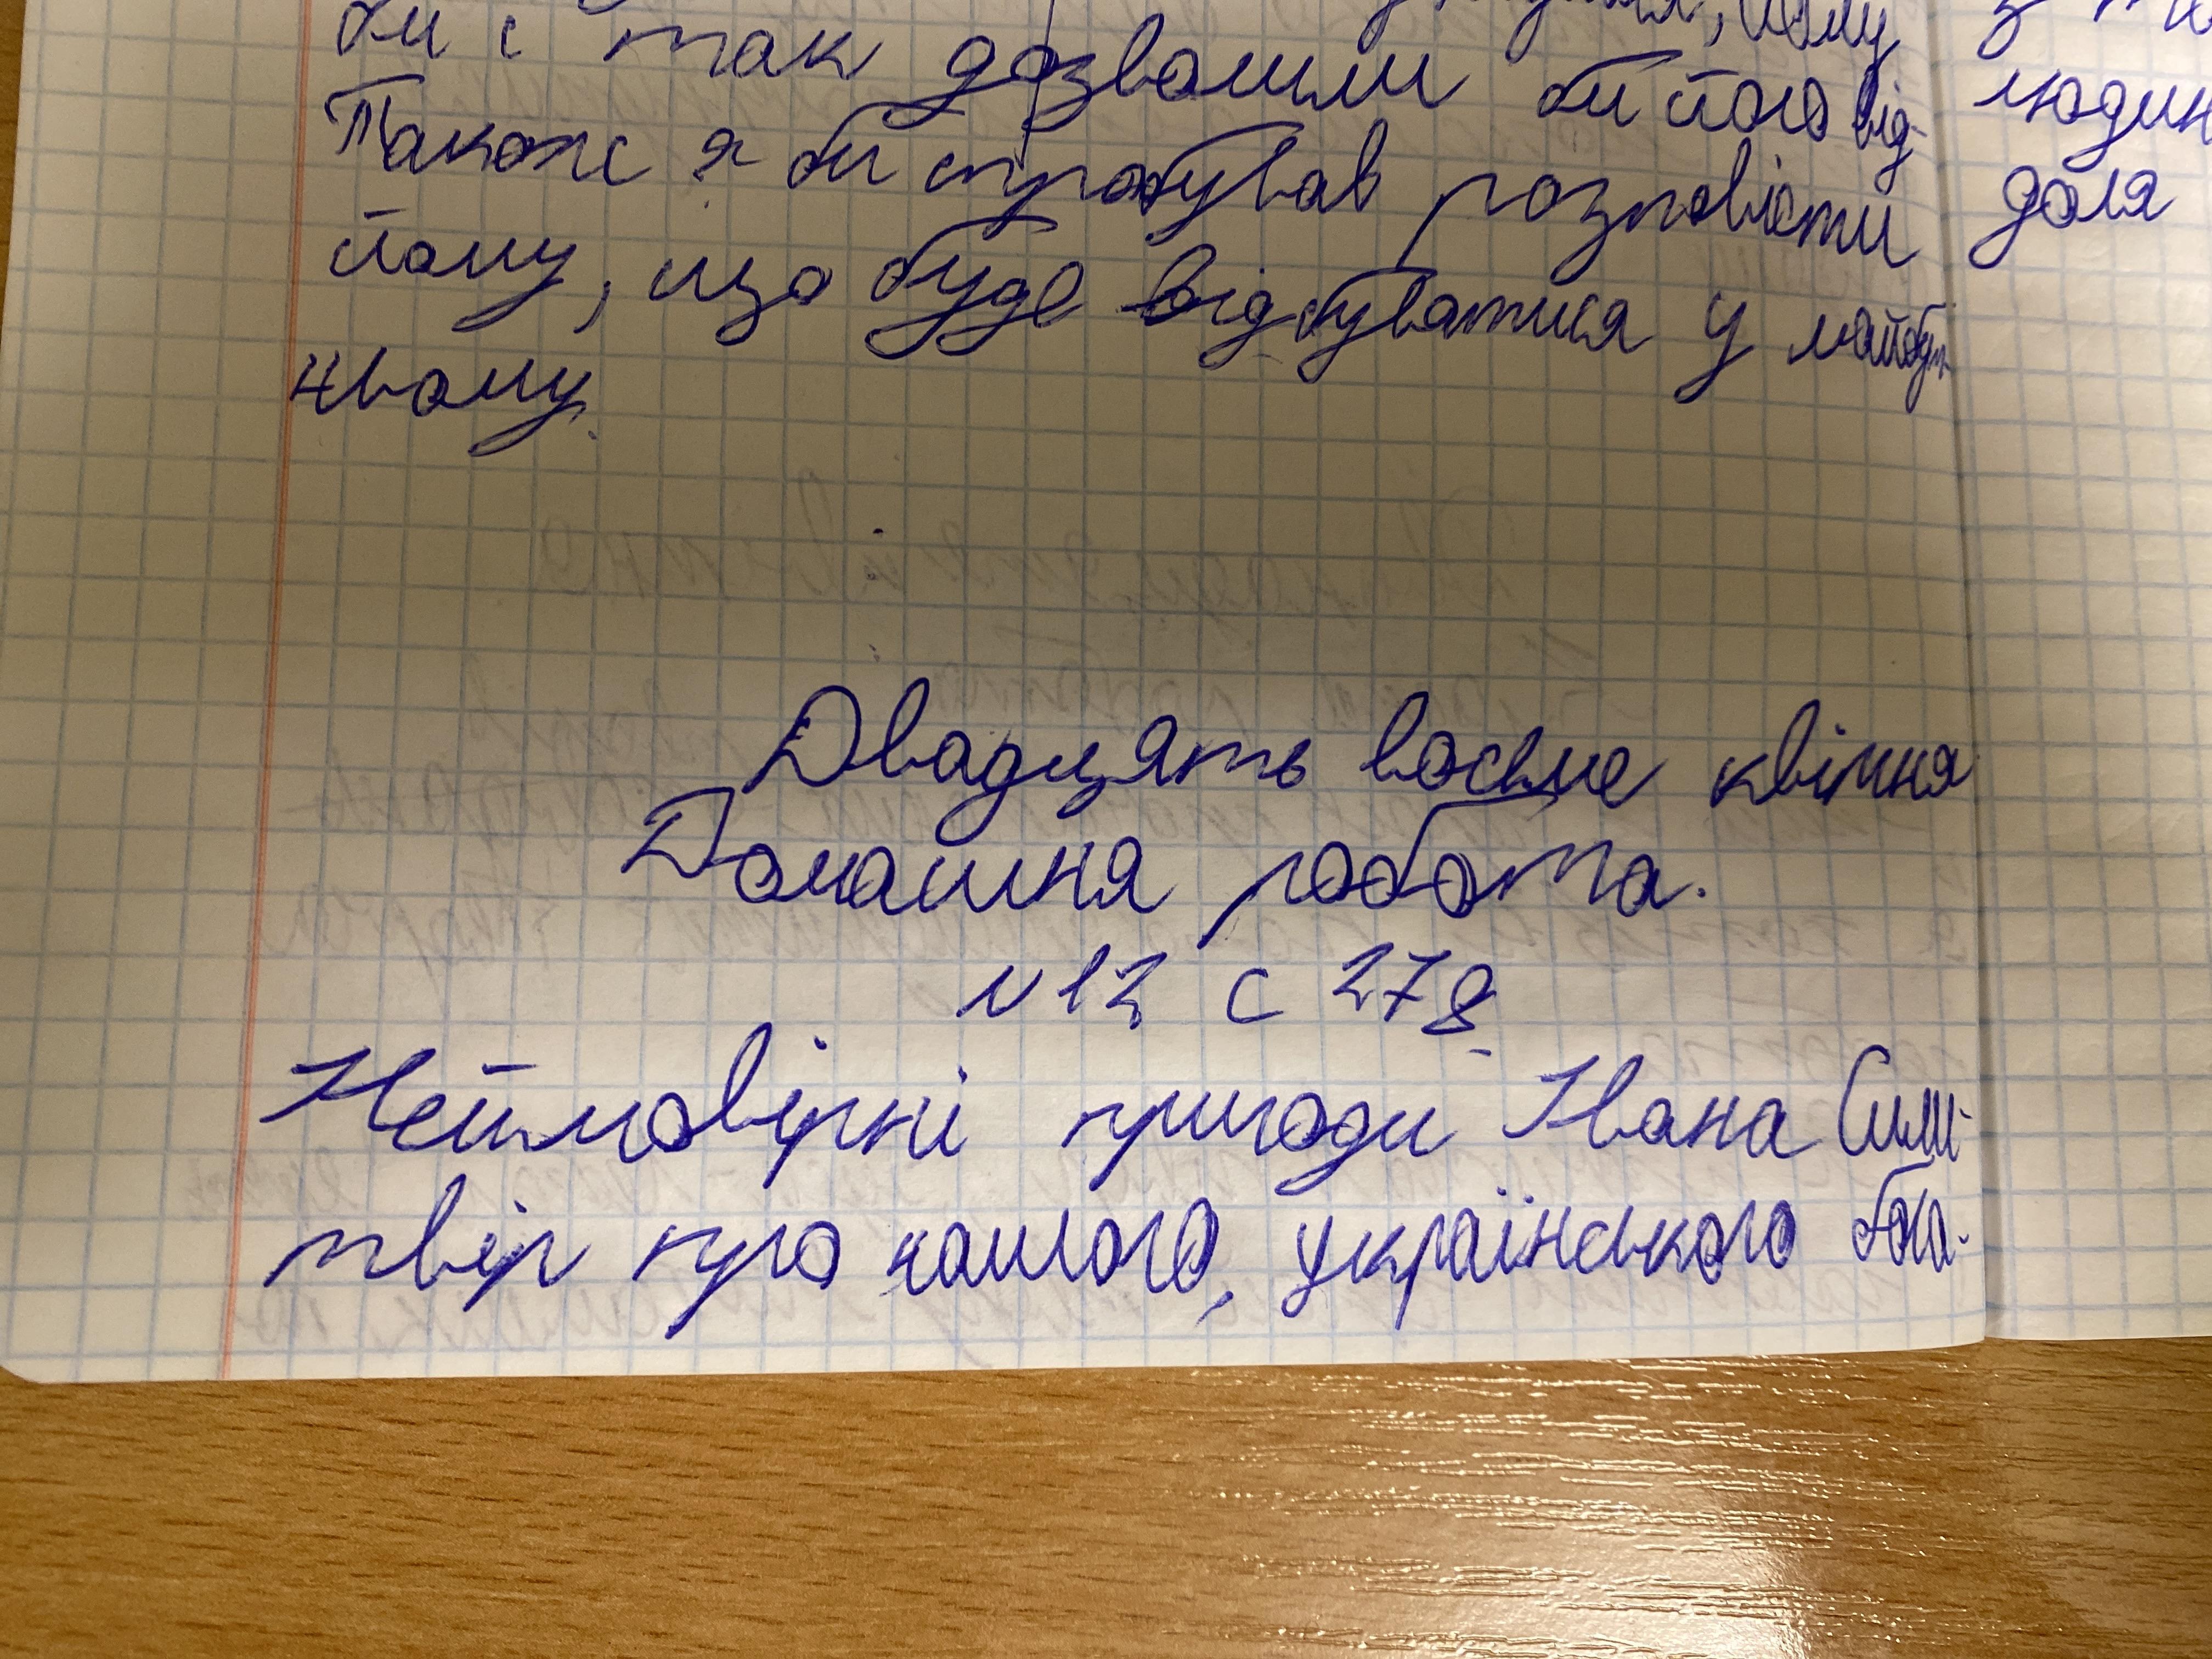 би і так дозволили би його від-
Також я би спробував розповісти
йому, що буде відбуватися у майбут-
ньому.
Двадцять восьме квітня
Домашня робота.
№12 с 278
Неймовірні пригоди Івана Сили-
твір про нашого, українського бога-
людин
доля